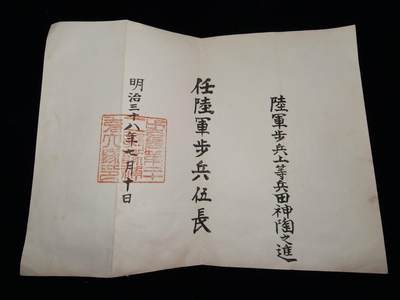 陸軍歩兵上等兵田神陶之進
任陸軍歩兵伍長
明治三十八年七月十日